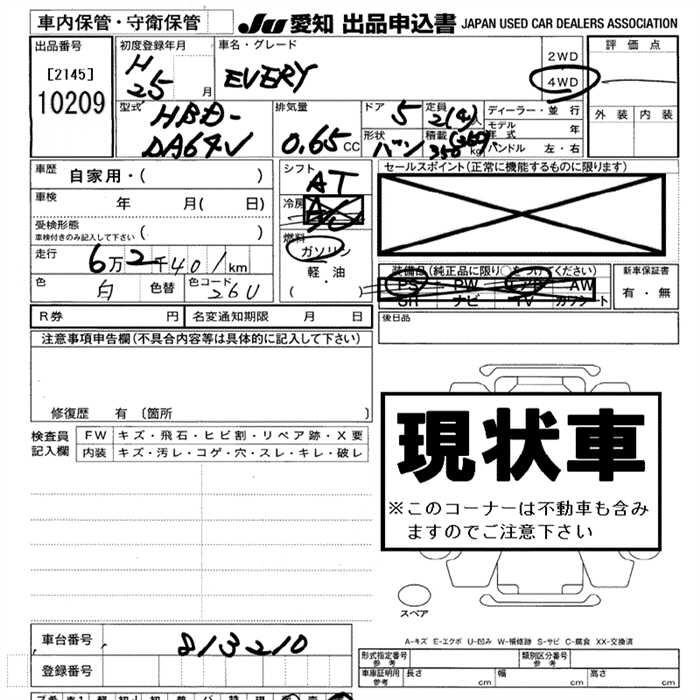 車内保管・守衛保管
JU 愛知 出品申込書 JAPAN USED CAR DEALERS ASSOCIATION
出品番号
[2145]
10209
初度登録年月
H
25 月
車名・グレード
EVERY
2WD
4WD
評価点
外装 内装
型式
HBD-
DA64V
排気量
0.65 CC
ドア
5
形状
バン
定員
2(4)人
積載
350 kg
ディーラー・並行
モデル
年式 年
ハンドル 左・右
車歴
自家用・( )
車検
年 月( 日)
受検形態
車検付きのみ記入して下さい ( )
走行
6万2千401km
色
白
色替
色コード
26U
シフト
AT
冷房
燃料
ガソリン
・
軽油
・
( )
セールスポイント(正常に機能するものに限ります)
装備品(純正品に限り○をつけてください)
PS PW エアB AW
SR ナビ TV カワシート
新車保証書
有・無
R券 円
名変通知期限 月 日
後日品
注意事項申告欄(不具合内容等は具体的に記入して下さい)
修復歴 有〔箇所 〕
検査員
記入欄
FW キズ・飛石・ヒビ割・リペア跡・X要
内装 キズ・汚レ・コゲ・穴・スレ・キレ・破レ
現状車
※このコーナーは不動車も含み
ますのでご注意下さい
スペア
A-キズ E-エクボ U-凹み W-補修跡 S-サビ C-腐食 XX-交換済
車台番号
813210
登録番号
形式指定番号
参考
類別区分番号
参考
車庫証明用
参考
長さ cm
幅 cm
高さ cm